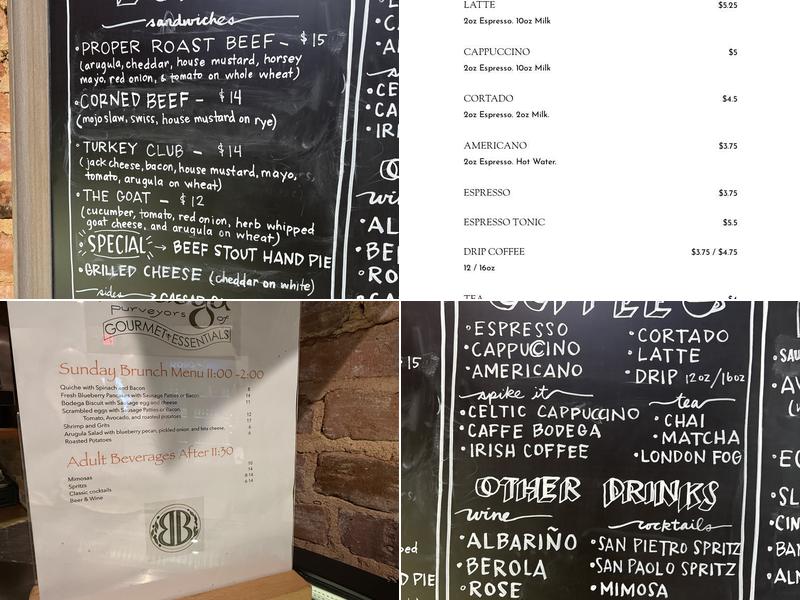 sandwiches
• PROPER ROAST BEEF - $15
(arugula, cheddar, house mustard, horsey
mayo, red onion, & tomato on whole wheat)
• CORNED BEEF - $14
(mojo slaw, swiss, house mustard on rye)
• TURKEY CLUB - $14
(jack cheese, bacon, house mustard, mayo,
tomato, arugula on wheat)
• THE GOAT - $12
(cucumber, tomato, red onion, herb whipped
goat cheese, and arugula on wheat)
SPECIAL → BEEF STOUT HAND PIE
• GRILLED CHEESE (cheddar on white)
sides
LATTE $5.25
2oz Espresso. 10oz Milk
CAPPUCCINO $5
2oz Espresso. 10oz Milk
CORTADO $4.5
2oz Espresso. 2oz Milk.
AMERICANO $3.75
2oz Espresso. Hot Water.
ESPRESSO $3.75
ESPRESSO TONIC $5.5
DRIP COFFEE $3.75 / $4.75
12 / 16oz
TEA $4
Purveyors of
GOURMET+ESSENTIALS
Sunday Brunch Menu 11:00 -2:00
Quiche with Spinach and Bacon 8
Fresh Blueberry Pancakes with Sausage Patties or Bacon 14
Bodega Biscuit with Sausage egg and cheese 11
Scrambled eggs with Sausage Patties or Bacon
Tomato, Avocado, and roasted potatoes 12
Shrimp and Grits 17
Arugula Salad with blueberry pecan, pickled onion, and feta cheese, 6
Roasted Potatoes 6
Adult Beverages After 11:30
Mimosas 10
Spritzs 14
Classic cocktails 8-14
Beer & Wine 6-14
BB
COFFEE
• ESPRESSO
• CAPPUCINO
• AMERICANO
• CORTADO
• LATTE
• DRIP 12oz/16oz
spike it
• CELTIC CAPPUCCINO
• CAFFE BODEGA
• IRISH COFFEE
tea
• CHAI
• MATCHA
• LONDON FOG
OTHER DRINKS
wine
• ALBARIÑO
• BEROLA
• ROSE
cocktails
• SAN PIETRO SPRITZ
• SAN PAOLO SPRITZ
• MIMOSA